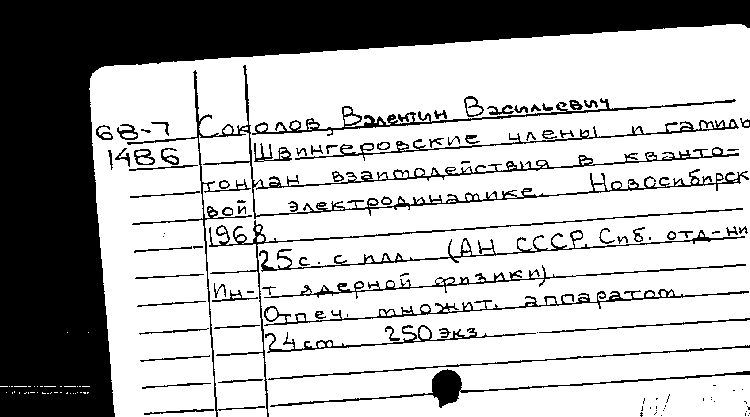 68-7 Соколов, Валентин Васильевич
1486 Швингеровские члены и гамиль
тониан взаимодействия в кванто-
вой электродинамике. Новосибирск
1968.
25с. с илл. (АН СССР. Сиб. отд-ни
Ин-т ядерной физики).
Отпеч. множит. аппаратом.
24см. 250 экз.